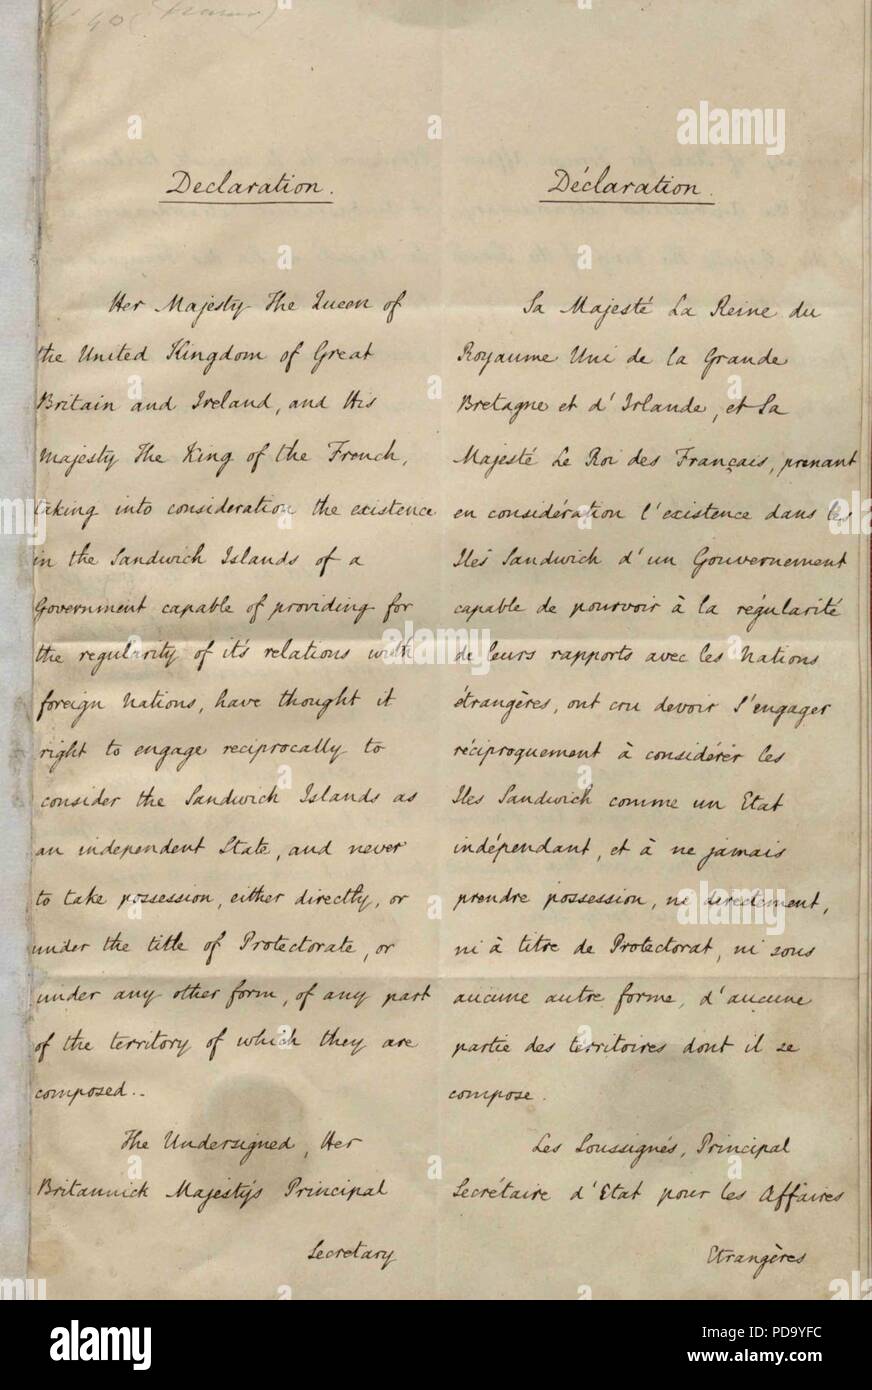 40 (France)
Declaration.
Her Majesty The Queen of
the United Kingdom of Great
Britain and Ireland, and His
Majesty The King of the French,
taking into consideration the existence
in the Sandwich Islands of a
Government capable of providing for
the regularity of it's relations with
foreign Nations, have thought it
right to engage reciprocally to
consider the Sandwich Islands as
an independent State, and never
to take possession, either directly, or
under the title of Protectorate, or
under any other form, of any part
of the territory of which they are
composed..
The Undersigned, Her
Britannick Majesty's Principal
Secretary
Déclaration.
Sa Majesté La Reine du
Royaume Uni de la Grande
Bretagne et d'Irlande, et Sa
Majesté Le Roi des Français, prenant
en considération l'existence dans les
Iles Sandwich d'un Gouvernement
capable de pourvoir à la régularité
de leurs rapports avec les Nations
étrangères, ont cru devoir s'engager
réciproquement à considérer les
Iles Sandwich comme un Etat
indépendant, et à ne jamais
prendre possession, ni directement,
ni à titre de Protectorat, ni sous
aucune autre forme, d'aucune
partie des territoires dont il se
compose.
Les Soussignés, Principal
Secrétaire d'Etat pour les Affaires
Etrangères
alamy
alamy
alamy
alamy
Image ID: PD9YFC
www.alamy.com